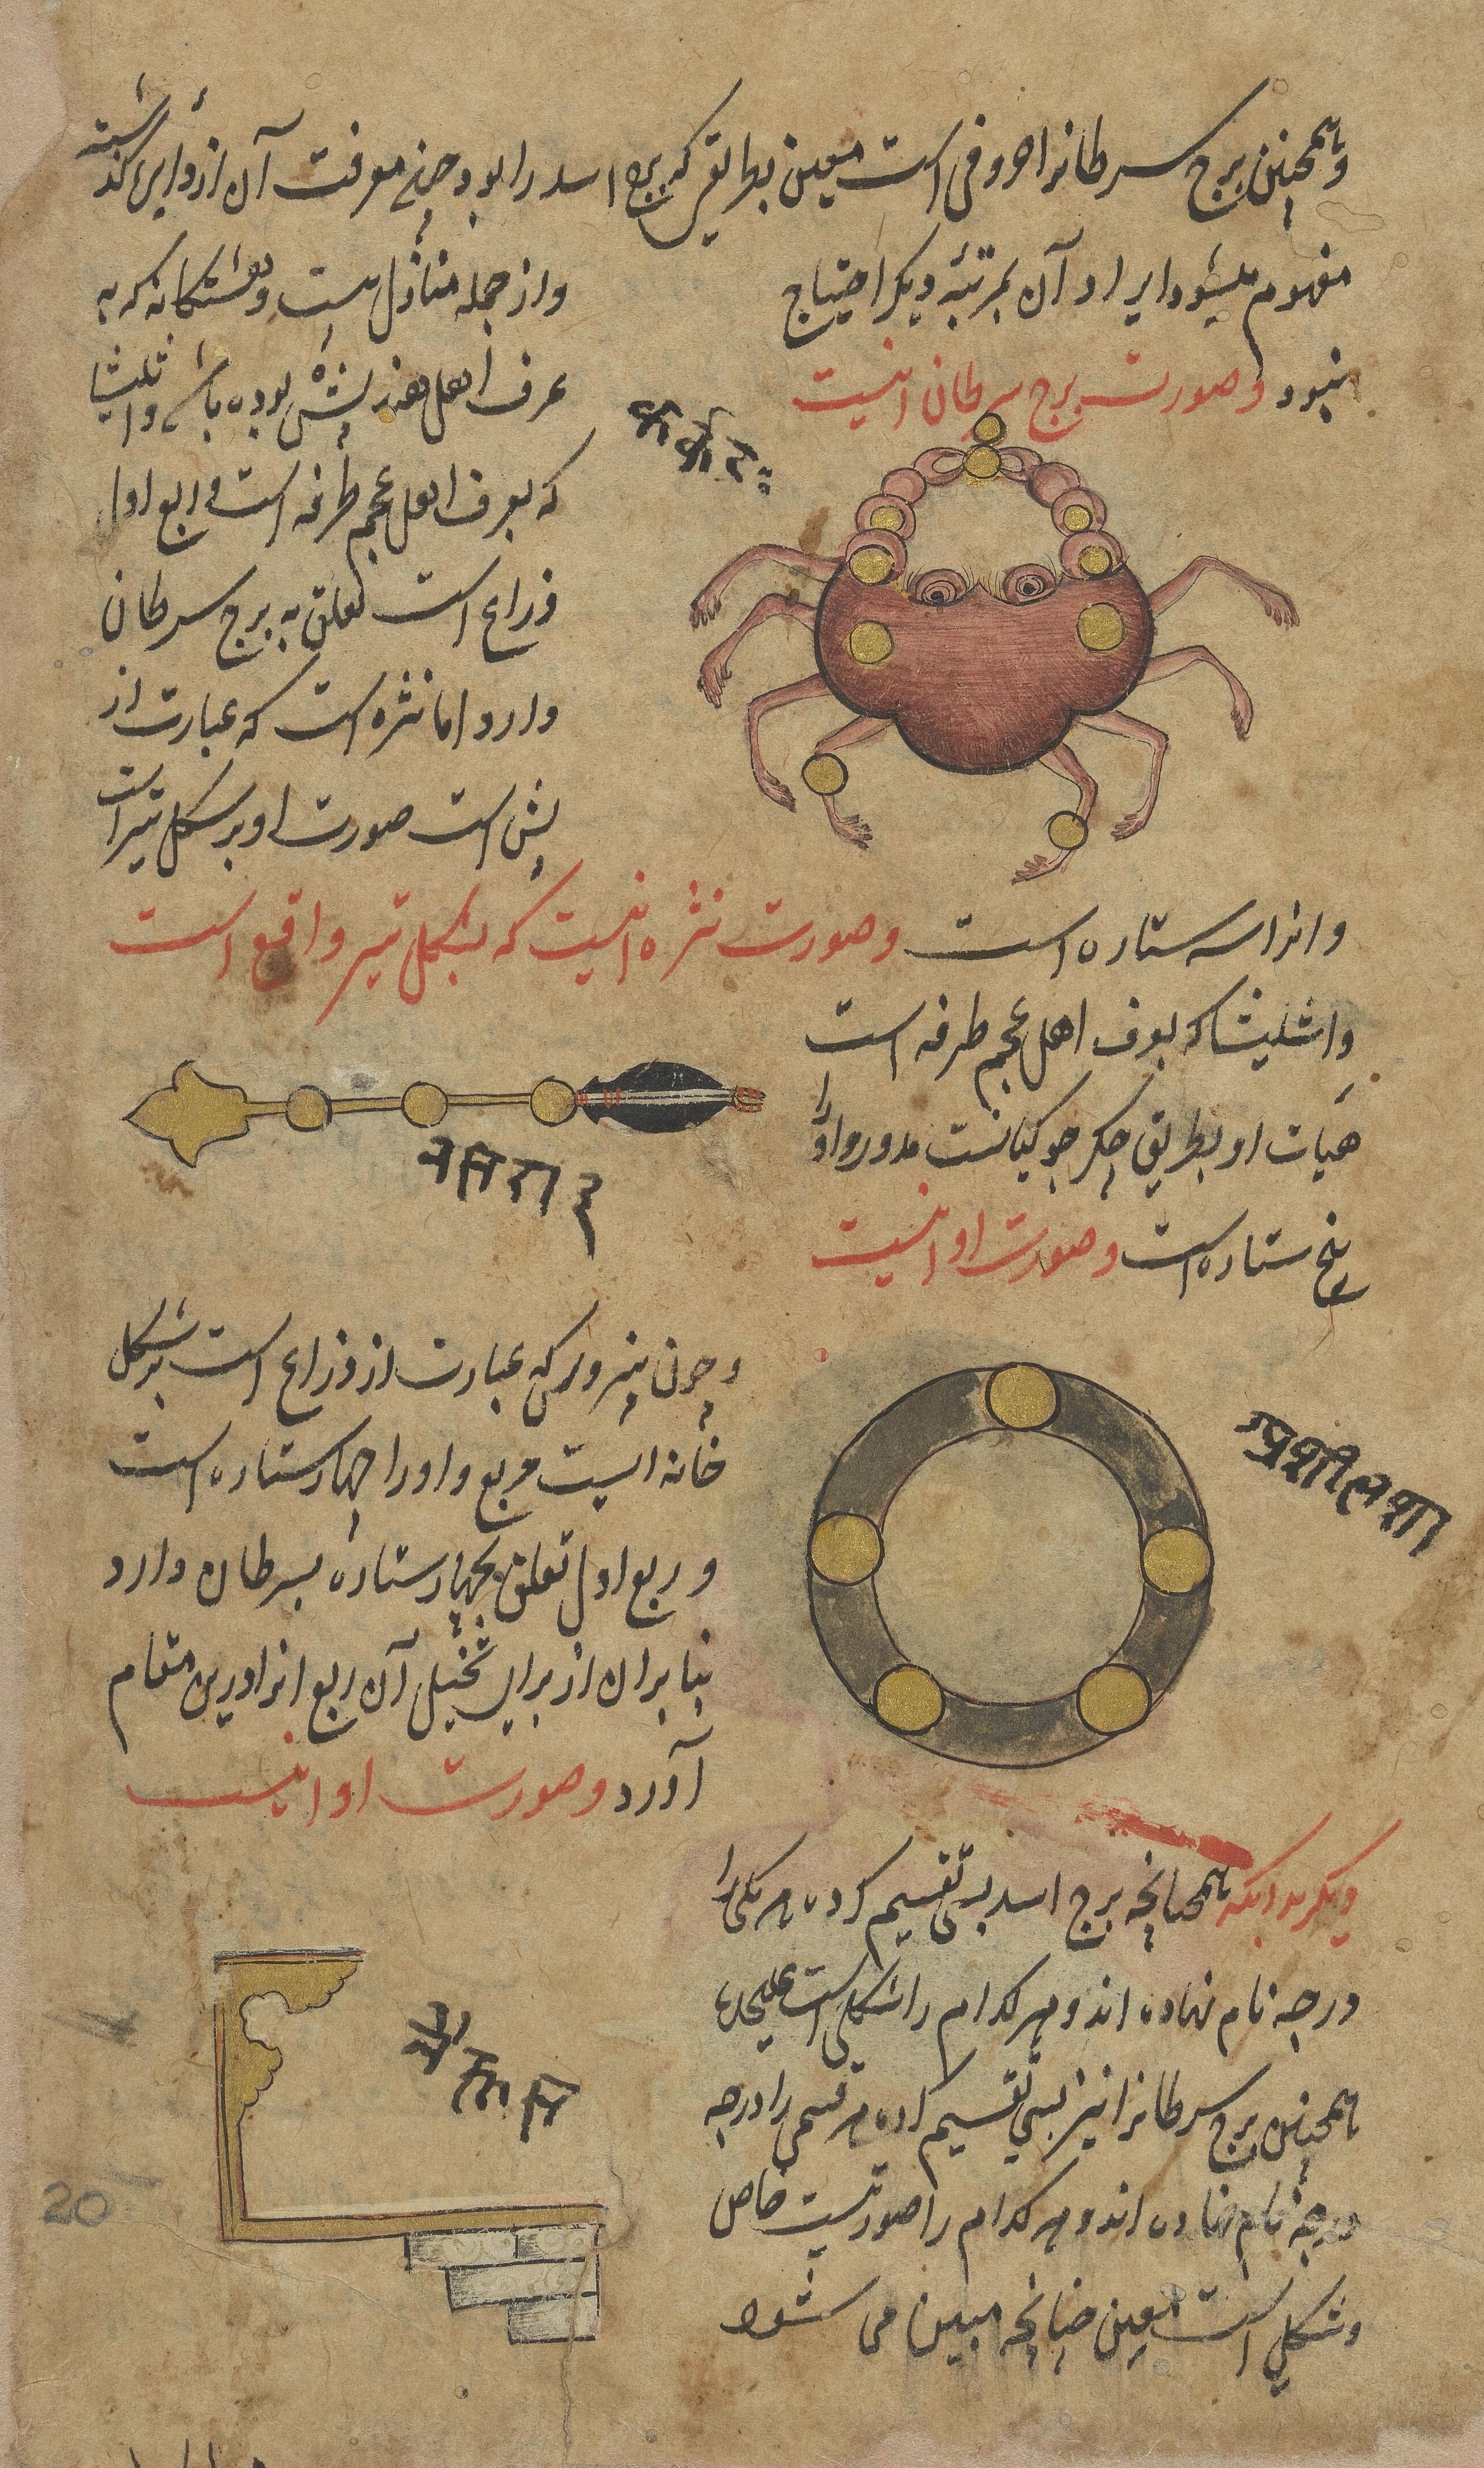 وهمچنین برج سرطانرا حروفی است معین بطریقی که برج اسد را بود چنانچه معرفت آن از دوایر گذشته
مفهوم میشود ایراد آن بمرتبهٔ دیگر احتیاج
نبود وصورت برج سرطان اینست
واز جمله منازل بیست و هشتگانه که به
عرف اهل هند پش بوده باشد واشلیشا
که بعرف اهل عجم طرفه است و ربع اول
ذراع است تعلق به برج سرطان
دارد اما نثره است که عبارت از
پش است صورت او بر شکل تیر است
कर्क
وانرا سه ستاره است وصورت نثره اینست که بشکل تیر واقع است
واشلیشا که بعرف اهل عجم طرفه است
هیات او بطریق چکر جوکیانست مدور واورا
پنج ستاره است وصورت او اینست
وچون پنرورس که عبارت از ذراع است بر شکل
خانه ایست مربع واورا چهار ستاره است
وربع اول تعلق بچهار ستاره بسرطان دارد
بنا بران از برای تخیل آن ربع انرا درین مقام
آورد وصورت او اینست
دیگر بدانکه همچنانچه برج اسد بسی تقسیم کرده هر یکی را
درجه نام نهاده اند وهر کدام را شکلی است علیحده
همچنین برج سرطانرا نیز بسی تقسیم کرده هر قسمی را درجه
درجه نام نهاده اند وهر کدام را صورتیست خاص
وشکلی است معین چنانچه مبین می شود
20